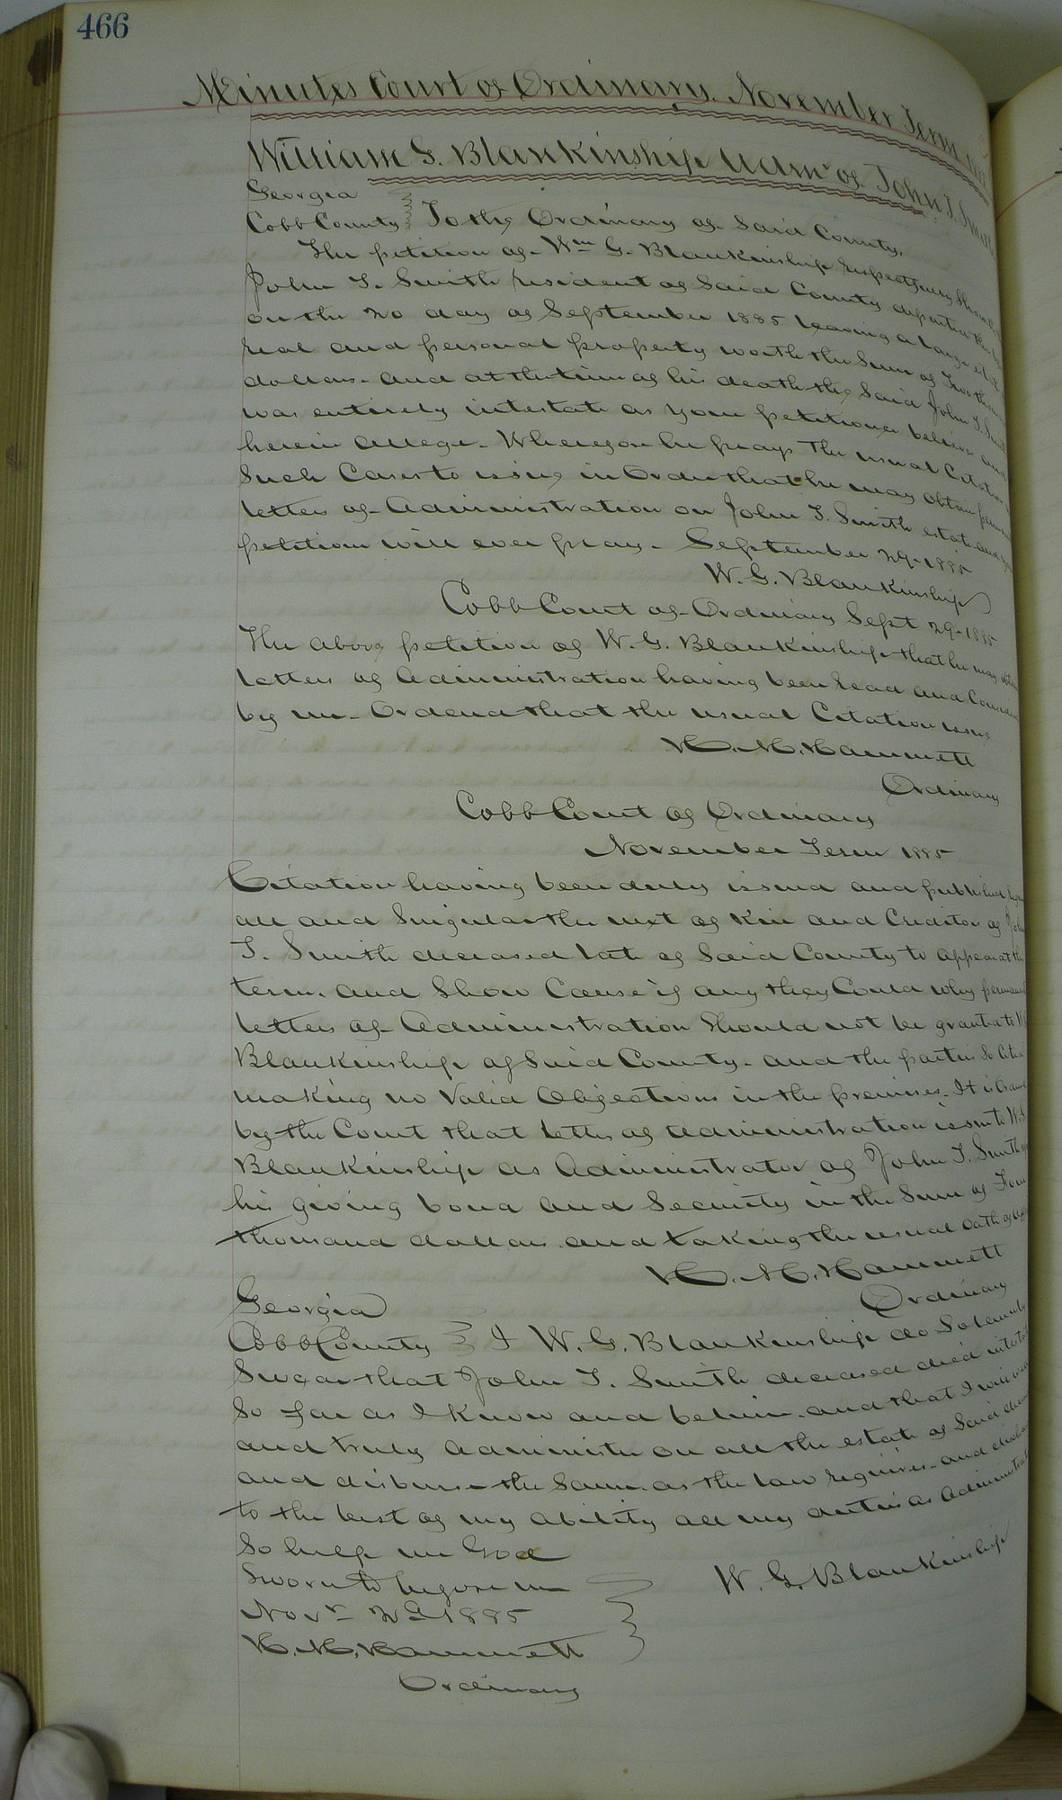 466
Minutes Court of Ordinary. November Term
William G. Blankinship Admr of John T. Smith
Georgia
Cobb County To the Ordinary of Said County,
The petition of Wm G. Blankinship respectfully
John T. Smith resident of Said County departed
on the 20 day of September 1885 leaving a large
real and personal property worth the Sum of
dollars. and at the time of his death the Said John T.
was entirely intestate as your petitioner believes and
herein allege. Wherefore he prays the usual Citation
Such Cases to issue in Order that he may obtain
letters of Administration on John T. Smith estate and
petition will ever pray. September 29. 1885
W. G. Blankinship
Cobb Court of Ordinary Sept 29. 1885
The above petition of W. G. Blankinship that he may
letters of Administration having been read and
by me. Ordered that the usual Citation issue
H. M. Hammett
Ordinary
Cobb Court of Ordinary
November Term 1885
Citation having been duly issued and published
all and Singular the next of Kin and Creditor of
T. Smith deceased late of Said County to appear at
term. and Show Cause if any they Could why
letters of Administration Should not be granted to
Blankinship of Said County. and the parties So
making no Valid Objections in the premises. It is
by the Court that letters of Administration issue to W. G.
Blankinship as Administrator of John T. Smith
his giving bond and Security in the Sum of Four
thousand dollars. and taking the usual oath of
H. M. Hammett
Ordinary
Georgia
Cobb County I W. G. Blankinship do Solemnly
Swear that John T. Smith deceased died
So far as I know and believe. and that I will
and truly administer on all the estate of Said
and disburse the Same. as the law requires. and
to the best of my ability all my duties as
So help me God
Sworn to before me
Novr 2d 1885
W. G. Blankinship
H. M. Hammett
Ordinary